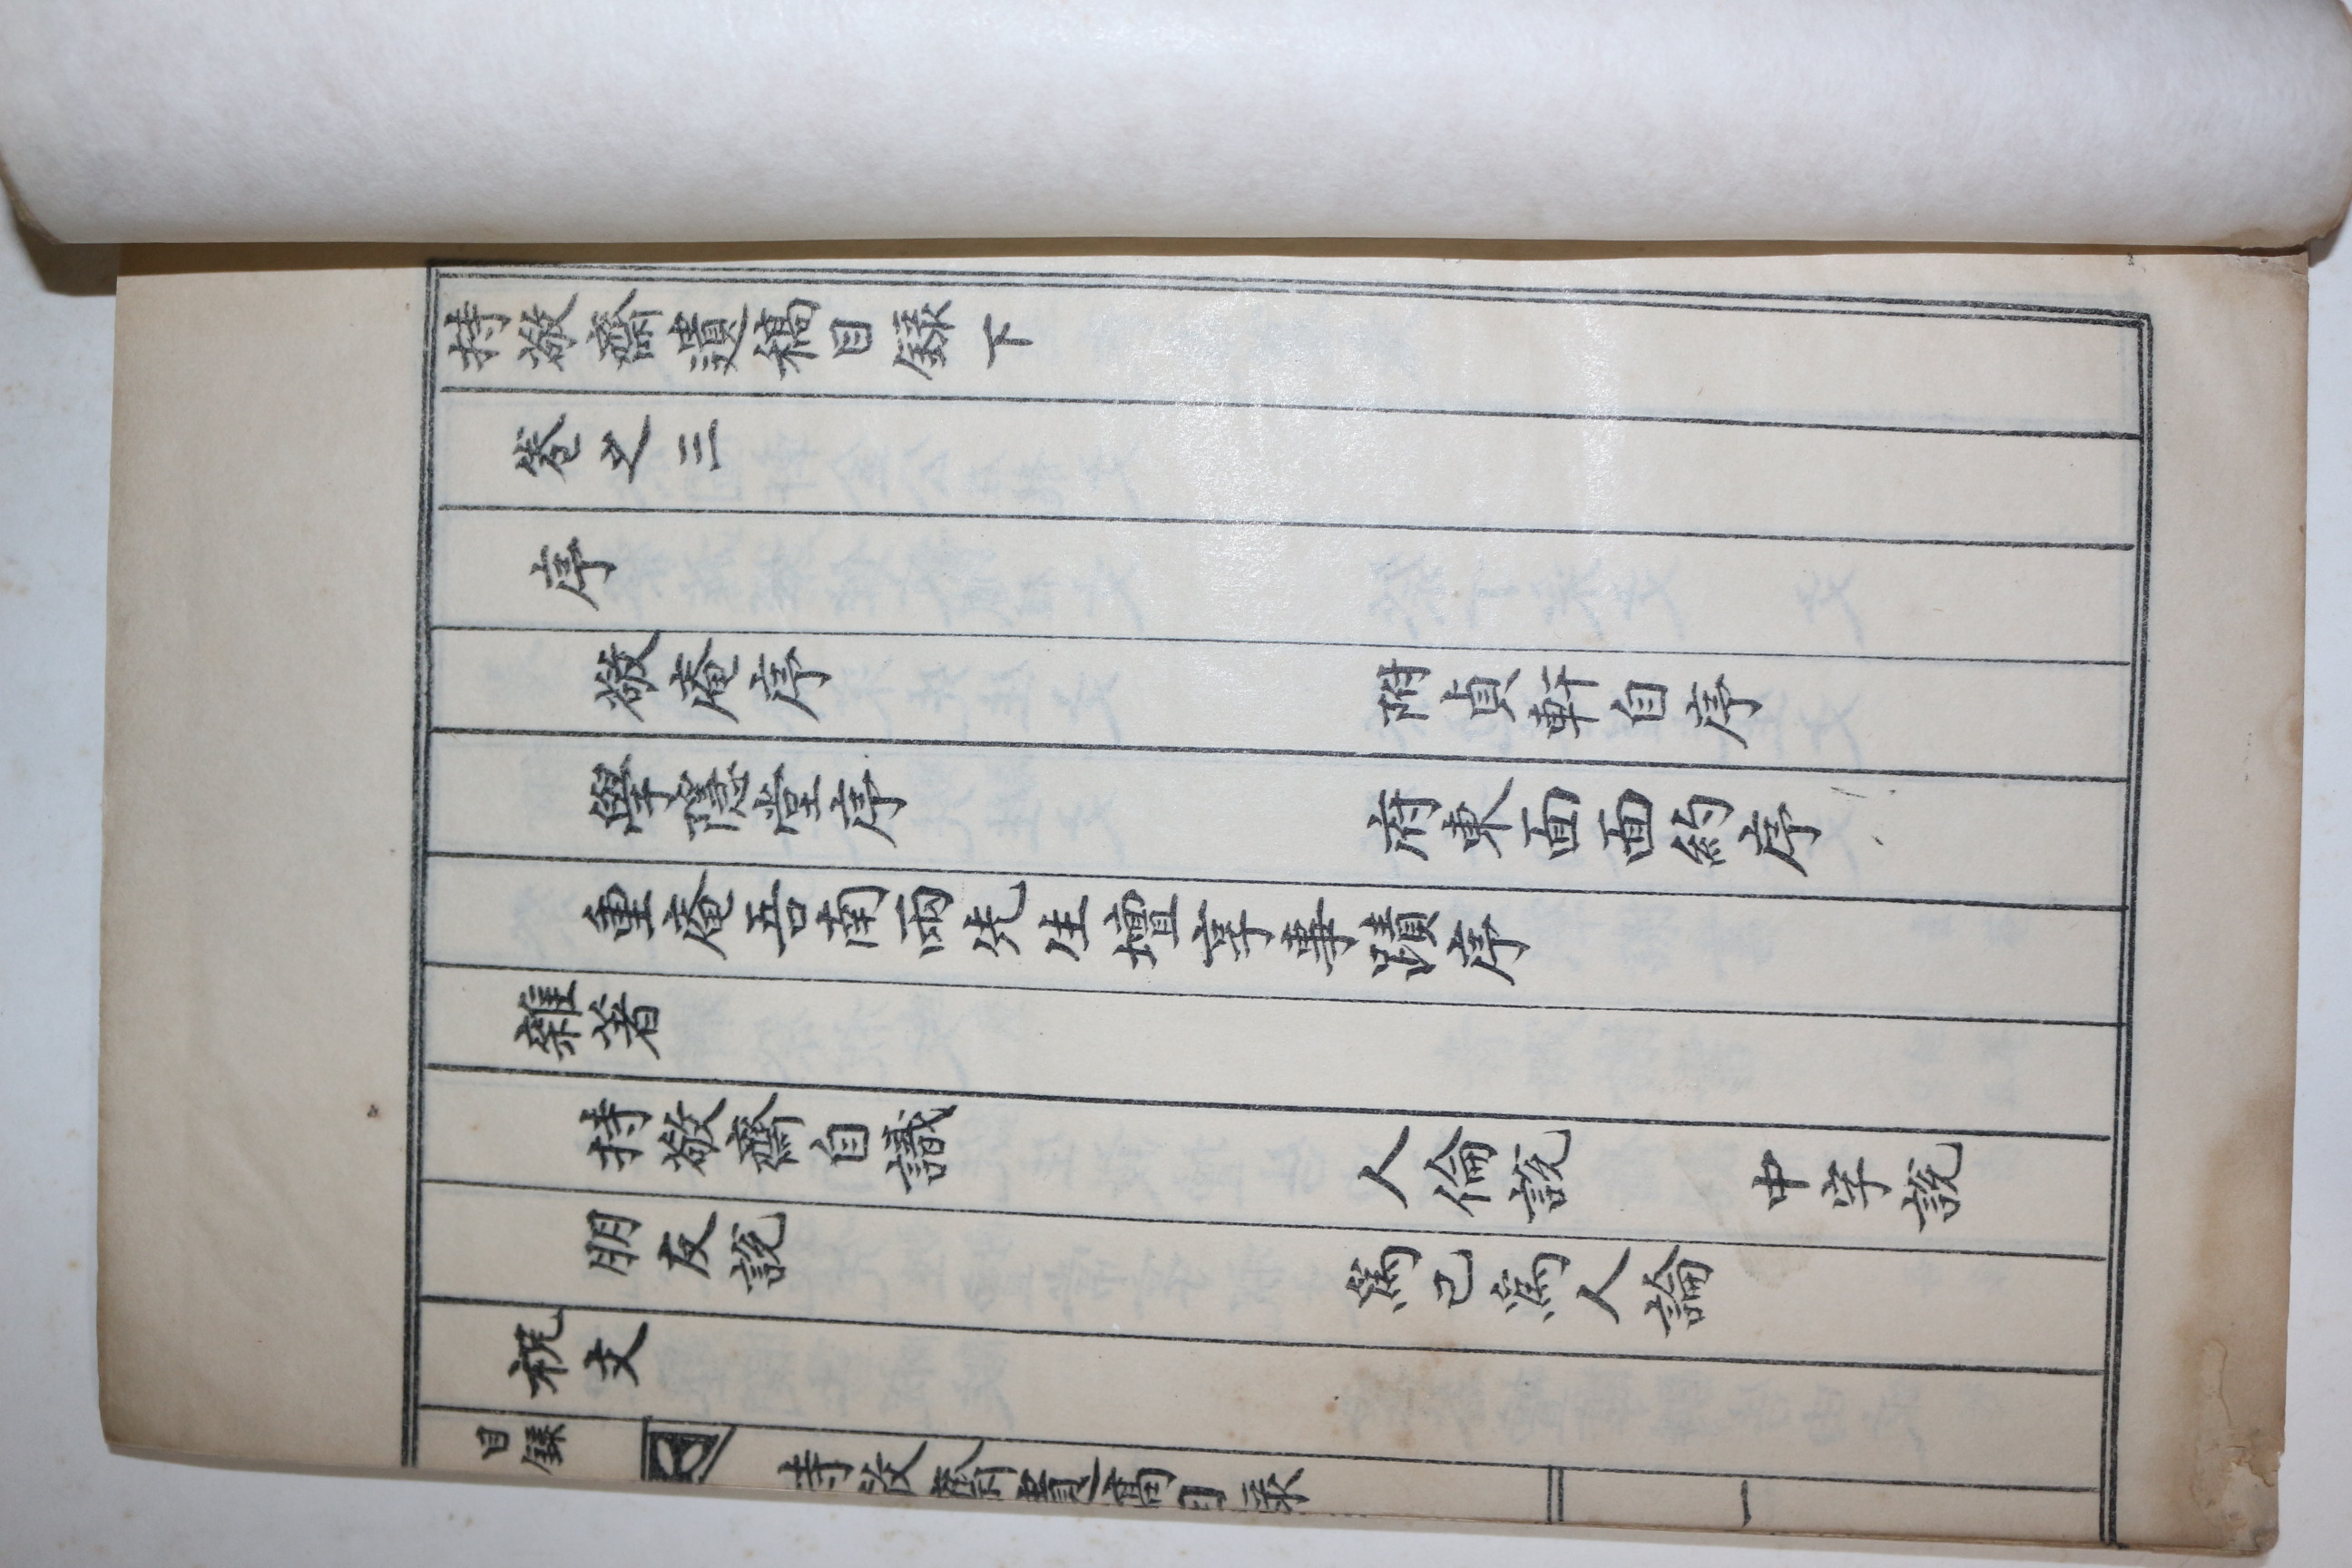 持敬齋遺稿目録下
卷之三
序
敬庵序 附貞軒自序
學隱堂序 府東面面約序
重庵吾南兩先生壇享事蹟序
雜著
持敬齋自識 人倫說 中字說
朋友說 爲己爲人論
祝文
目録 持敬齋遺稿目录 一